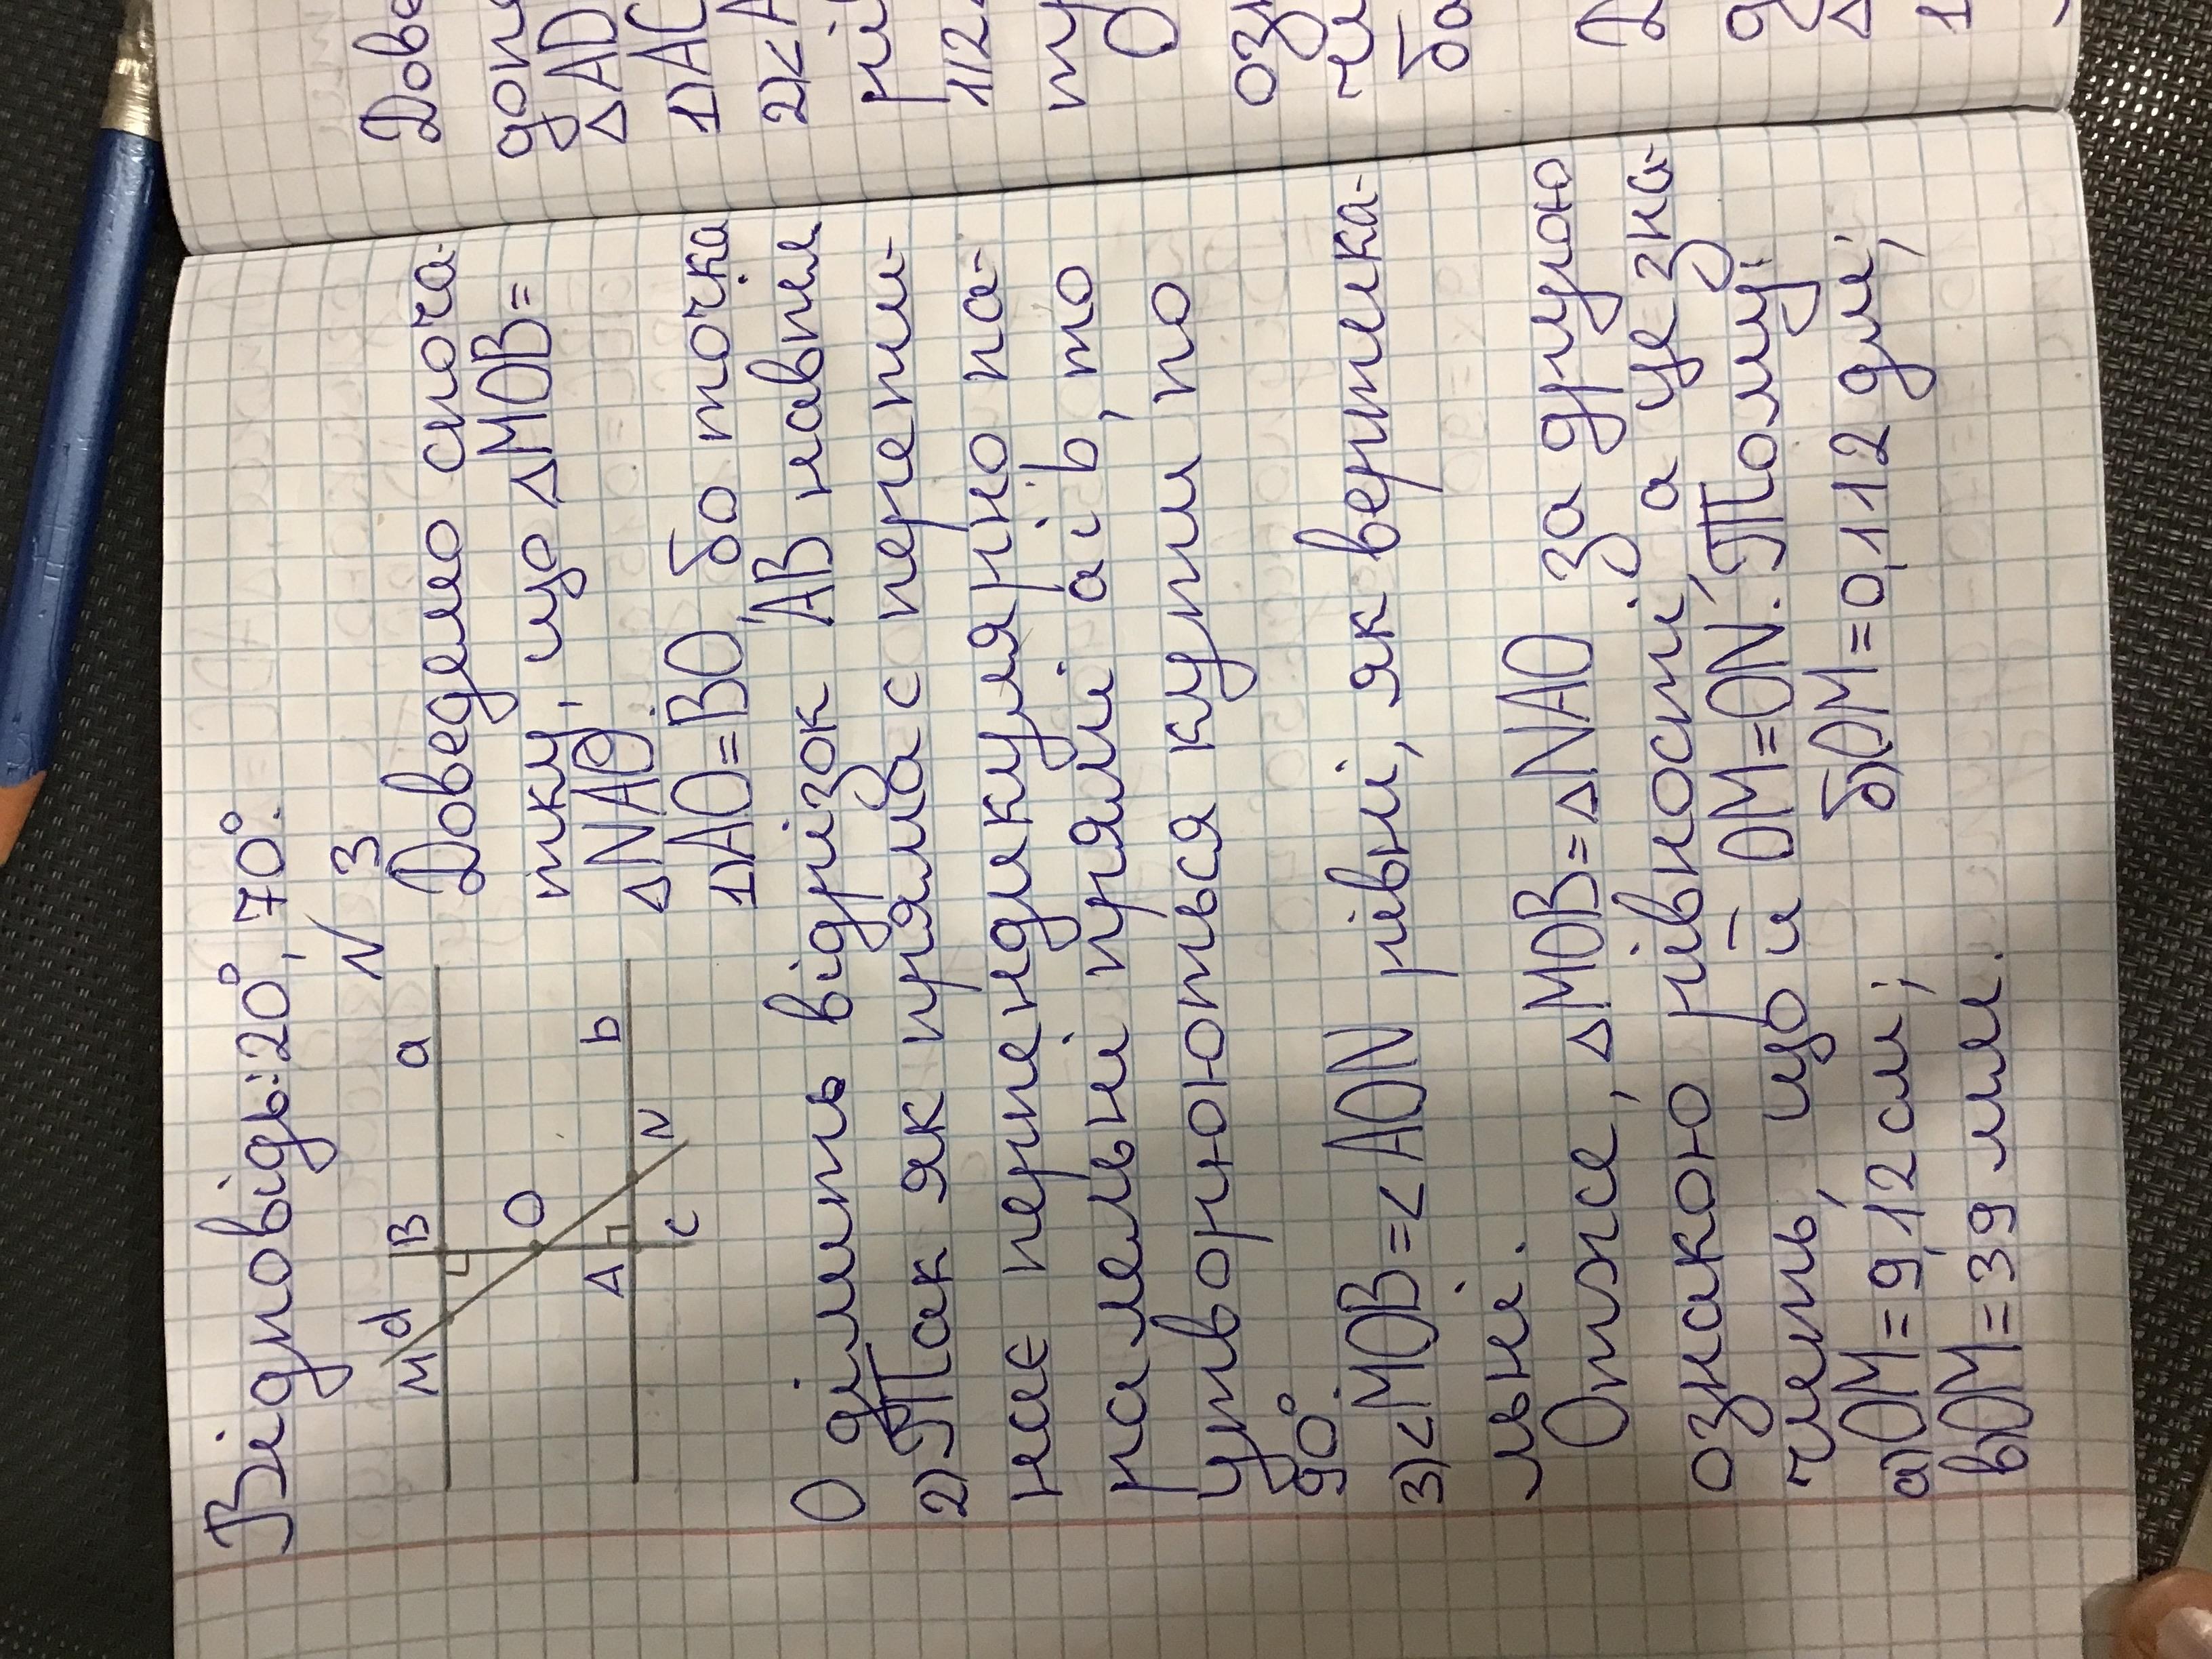 Відповідь: 20°, 70°.
N 3
M d B a
O
A b
c N
Доведемо споча-
тку, що △MOB=
△NAO:
1) AO=BO, бо точка
O ділить відрізок AB навпіл
2) Так як пряма c перети-
нає перпендикулярно па-
ралельні прямі a і b, то
утворюються кути по
90°.
3) <MOB=<AON рівні, як вертика-
льні.
Отже, △MOB=△NAO за другою
ознакою рівності, а це зна-
чить, що й OM=ON. Тому:
а) OM=9,12 см; б) OM=0,112 дм;
в) OM=39 мм.
Дове
доп
△AD
1) AC
2) <A
рів
1) 2
ту
О
озн
чи
ба